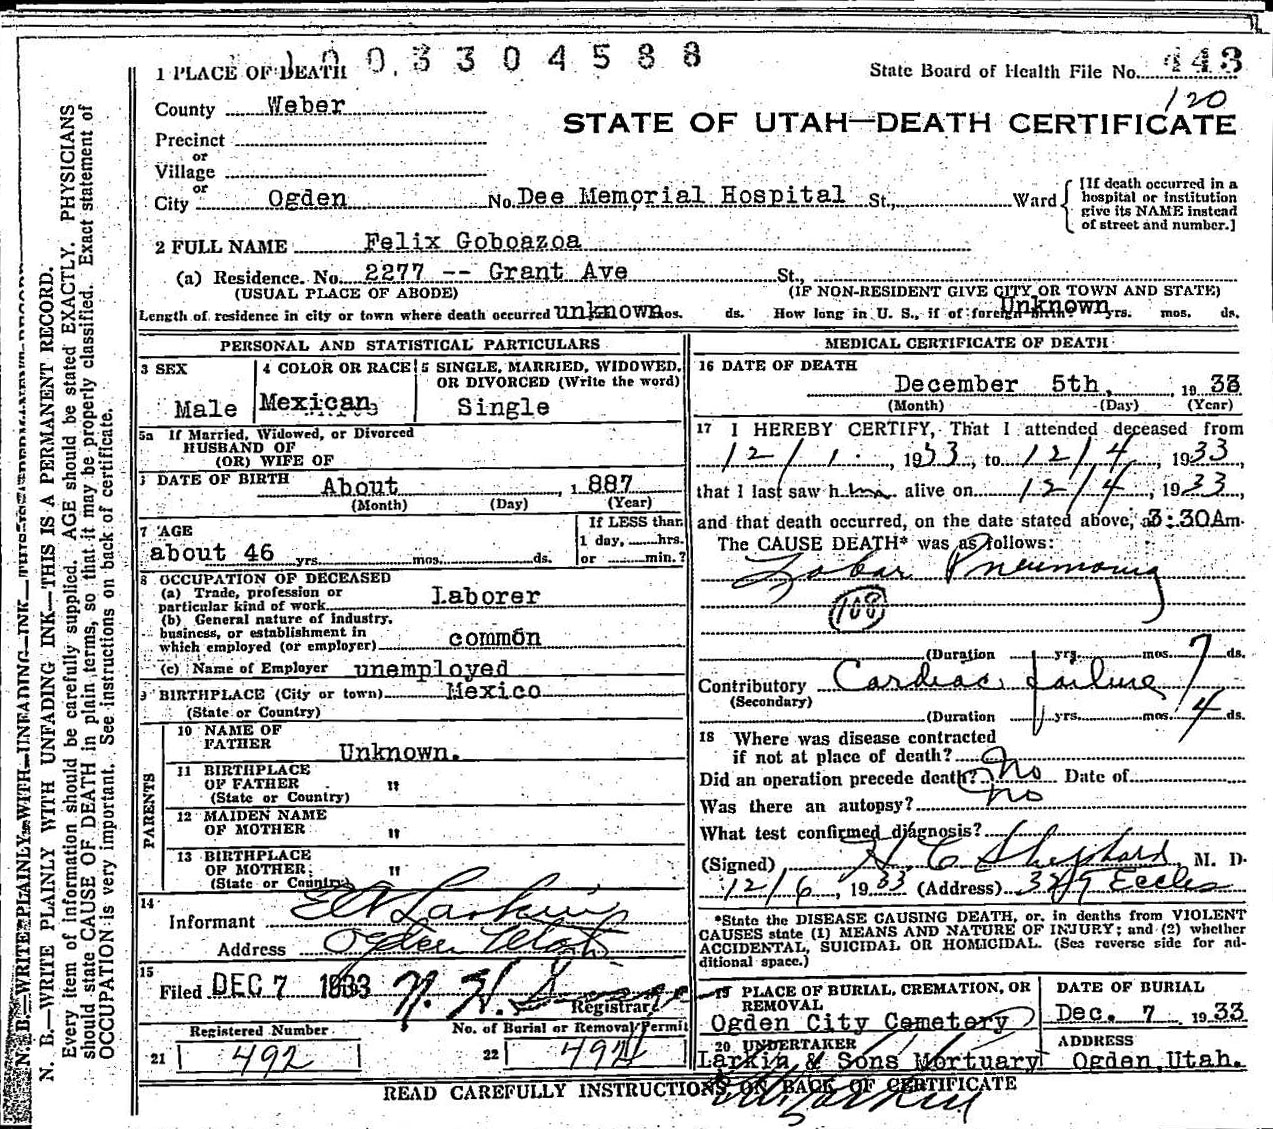 1003304588
1 PLACE OF DEATH
State Board of Health File No. 443
120
County Weber
STATE OF UTAH—DEATH CERTIFICATE
Precinct
or
Village
or
City Ogden No. Dee Memorial Hospital St., Ward
[If death occurred in a
hospital or institution
give its NAME instead
of street and number.]
2 FULL NAME Felix Goboazoa
(a) Residence. No. 2277 -- Grant Ave St.,
(USUAL PLACE OF ABODE) (IF NON-RESIDENT GIVE CITY OR TOWN AND STATE)
Length of residence in city or town where death occurred unknown mos. ds. How long in U. S., if of foreign birth? Unknown yrs. mos. ds.
PERSONAL AND STATISTICAL PARTICULARS
3 SEX
Male
4 COLOR OR RACE
Mexican
5 SINGLE, MARRIED, WIDOWED,
OR DIVORCED (Write the word)
Single
5a If Married, Widowed, or Divorced
HUSBAND OF
(OR) WIFE OF
DATE OF BIRTH About , 1 887
(Month) (Day) (Year)
7 AGE
about 46 yrs. mos. ds.
If LESS than
1 day, hrs.
or min.?
8 OCCUPATION OF DECEASED
(a) Trade, profession or
particular kind of work Laborer
(b) General nature of industry,
business, or establishment in
which employed (or employer) common
(c) Name of Employer unemployed
9 BIRTHPLACE (City or town) Mexico
(State or Country)
PARENTS
10 NAME OF
FATHER Unknown.
11 BIRTHPLACE
OF FATHER "
(State or Country)
12 MAIDEN NAME
OF MOTHER "
13 BIRTHPLACE
OF MOTHER "
(State or Country)
14
Informant E W Larkin
Address Ogden Utah
15
Filed DEC 7 1933
Registrar
Registered Number
21 492
No. of Burial or Removal Permit
22 492
MEDICAL CERTIFICATE OF DEATH
16 DATE OF DEATH
December 5th, 1933
(Month) (Day) (Year)
17 I HEREBY CERTIFY, That I attended deceased from
12/1 , 1933, to 12/4 , 1933,
that I last saw him alive on 12/4 , 1933,
and that death occurred, on the date stated above, a 3:30Am.
The CAUSE DEATH* was as follows:
Lobar Pneumonia
108
(Duration yrs. mos. 7 ds.
Contributory Cardiac failure
(Secondary)
(Duration yrs. mos. 4 ds.
18 Where was disease contracted
if not at place of death?
Did an operation precede death? No Date of
Was there an autopsy? no
What test confirmed diagnosis?
(Signed) H C Shepherd, M. D.
12/6 , 1933 (Address) 3219 Eccles
*State the DISEASE CAUSING DEATH, or, in deaths from VIOLENT
CAUSES state (1) MEANS AND NATURE OF INJURY; and (2) whether
ACCIDENTAL, SUICIDAL OR HOMICIDAL. (See reverse side for ad-
ditional space.)
19 PLACE OF BURIAL, CREMATION, OR
REMOVAL
Ogden City Cemetery
DATE OF BURIAL
Dec. 7 1933
20 UNDERTAKER
Larkin & Sons Mortuary
ADDRESS
Ogden, Utah.
READ CAREFULLY INSTRUCTIONS ON BACK OF CERTIFICATE
N. B.—WRITE PLAINLY WITH UNFADING INK—THIS IS A PERMANENT RECORD.
Every item of information should be carefully supplied. AGE should be stated EXACTLY. PHYSICIANS
should state CAUSE OF DEATH in plain terms, so that it may be properly classified. Exact statement of
OCCUPATION is very important. See instructions on back of certificate.